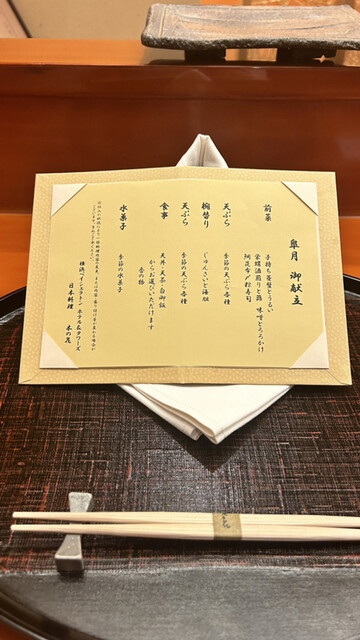 皐月 御献立
前菜
子持ち昆布とうるい
味噌とろろかけ
天ぷら
季節の天ぷら各種
椀替り
じゅんさいと海胆
天ぷら
季節の天ぷら各種
食事
天丼・天茶・白御飯
からお選びいただけます
香の物
水菓子
季節の水菓子
横浜ベイシェラトン ホテル&タワーズ
日本料理 木の花